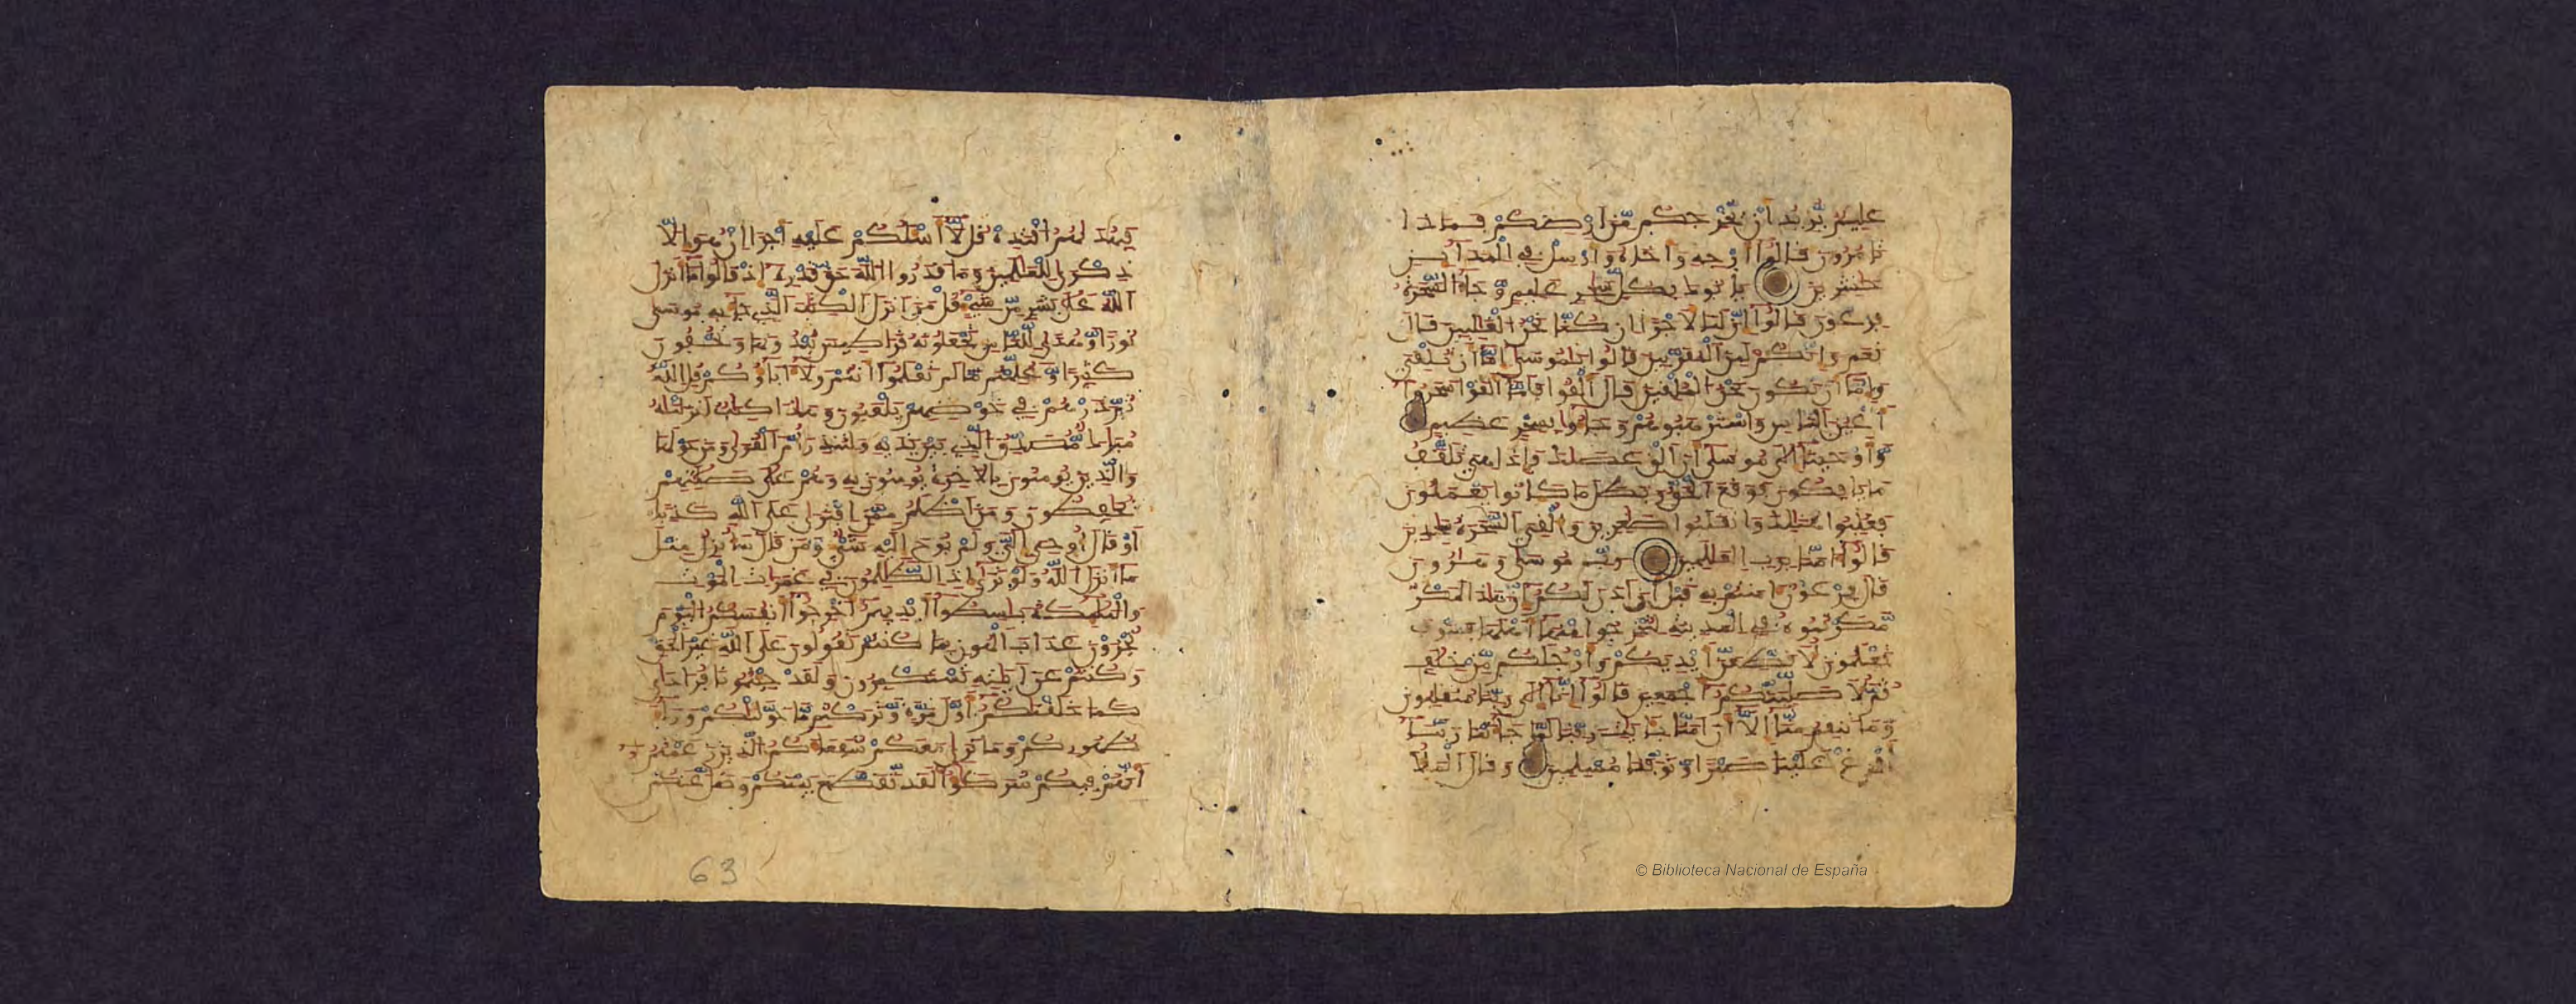 عليم يريد أن يخرجكم من أرضكم فماذا
تامرون قالوا أرجه وأخاه وأرسل في المداين
حشرين ياتوك بكل سحر عليم وجاء السحرة
فرعون قالوا إن لنا لأجرا إن كنا نحن الغلبين قال
نعم وإنكم لمن المقربين قالوا يموسى إما أن تلقي
وإما أن نكون نحن الملقين قال ألقوا فلما ألقوا سحروا
أعين الناس واسترهبوهم وجاءو بسحر عظيم
وأوحينا إلى موسى أن ألق عصاك فإذا هي تلقف
ما يافكون فوقع الحق وبطل ما كانوا يعملون
فغلبوا هنالك وانقلبوا صغرين وألقي السحرة سجدين
قالوا ءامنا برب العلمين رب موسى وهرون
قال فرعون ءامنتم به قبل أن ءاذن لكم إن هذا لمكر
مكرتموه في المدينة لتخرجوا منها أهلها فسوف
تعلمون لأقطعن أيديكم وأرجلكم من خلف
ثم لأصلبنكم أجمعين قالوا إنا إلى ربنا منقلبون
وما تنقم منا إلا أن ءامنا بايت ربنا لما جاءتنا ربنا
أفرغ علينا صبرا وتوفنا مسلمين وقال الملأ
فبهديهم اقتده قل لا أسلكم عليه أجرا إن هو إلا
ذكرى للعلمين وما قدروا الله حق قدره إذ قالوا ما أنزل
الله على بشر من شيء قل من أنزل الكتب الذي جاء به موسى
نورا وهدى للناس تجعلونه قراطيس تبدونها وتخفون
كثيرا وعلمتم ما لم تعلموا أنتم ولا ءاباؤكم قل الله
ثم ذرهم في خوضهم يلعبون وهذا كتب أنزلنه
مبارك مصدق الذي بين يديه ولتنذر أم القرى ومن حولها
والذين يومنون بالآخرة يومنون به وهم على صلاتهم
يحافظون ومن أظلم ممن افترى على الله كذبا
أو قال أوحي إلي ولم يوح إليه شيء ومن قال سأنزل مثل
ما أنزل الله ولو ترى إذ الظلمون في غمرات الموت
والملئكة باسطوا أيديهم أخرجوا أنفسكم اليوم
تجزون عذاب الهون بما كنتم تقولون على الله غير الحق
وكنتم عن ءايته تستكبرون ولقد جئتمونا فردى
كما خلقنكم أول مرة وتركتم ما خولنكم وراء
ظهوركم وما نرى معكم شفعاءكم الذين زعمتم
أنهم فيكم شركؤا لقد تقطع بينكم وضل عنكم
63
© Biblioteca Nacional de España